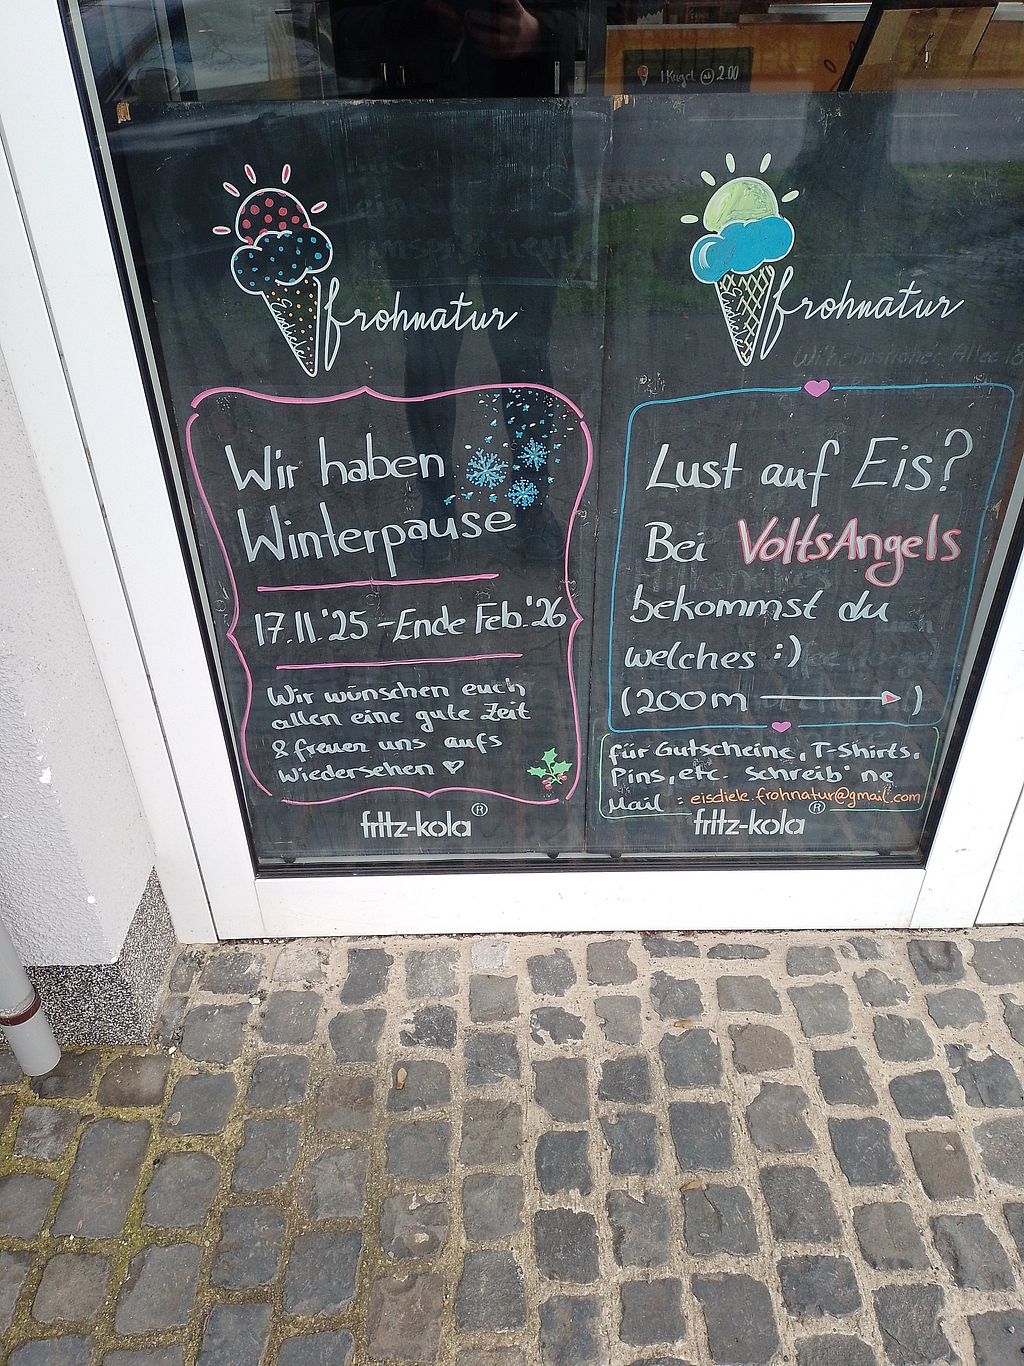 1 Kugel ab 2.00
Eisdiele
frohnatur
Wir haben
Winterpause
17.11.'25 - Ende Feb.'26
Wir wünschen euch
allen eine gute Zeit
& freuen uns aufs
Wiedersehen ♡
fritz-kola®
Eisdiele
frohnatur
Wilhelmshöher Allee 18
Lust auf Eis?
Bei VoltsAngels
bekommst du
welches :)
(200m → )
für Gutscheine, T-Shirts,
Pins, etc. schreib' ne
Mail : eisdiele.frohnatur@gmail.com
fritz-kola®